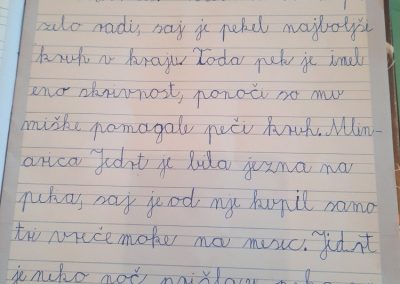 zelo radi, saj je pekel najboljše
kruh v kraju. Toda pek je imel
eno skrivnost, ponoči so mu
miške pomagale peči kruh. Mlin-
arica Jedrt je bila jezna na
peka, saj je od nje kupil samo
tri vreče moke na mesec. Jedrt
je neko noč prišla